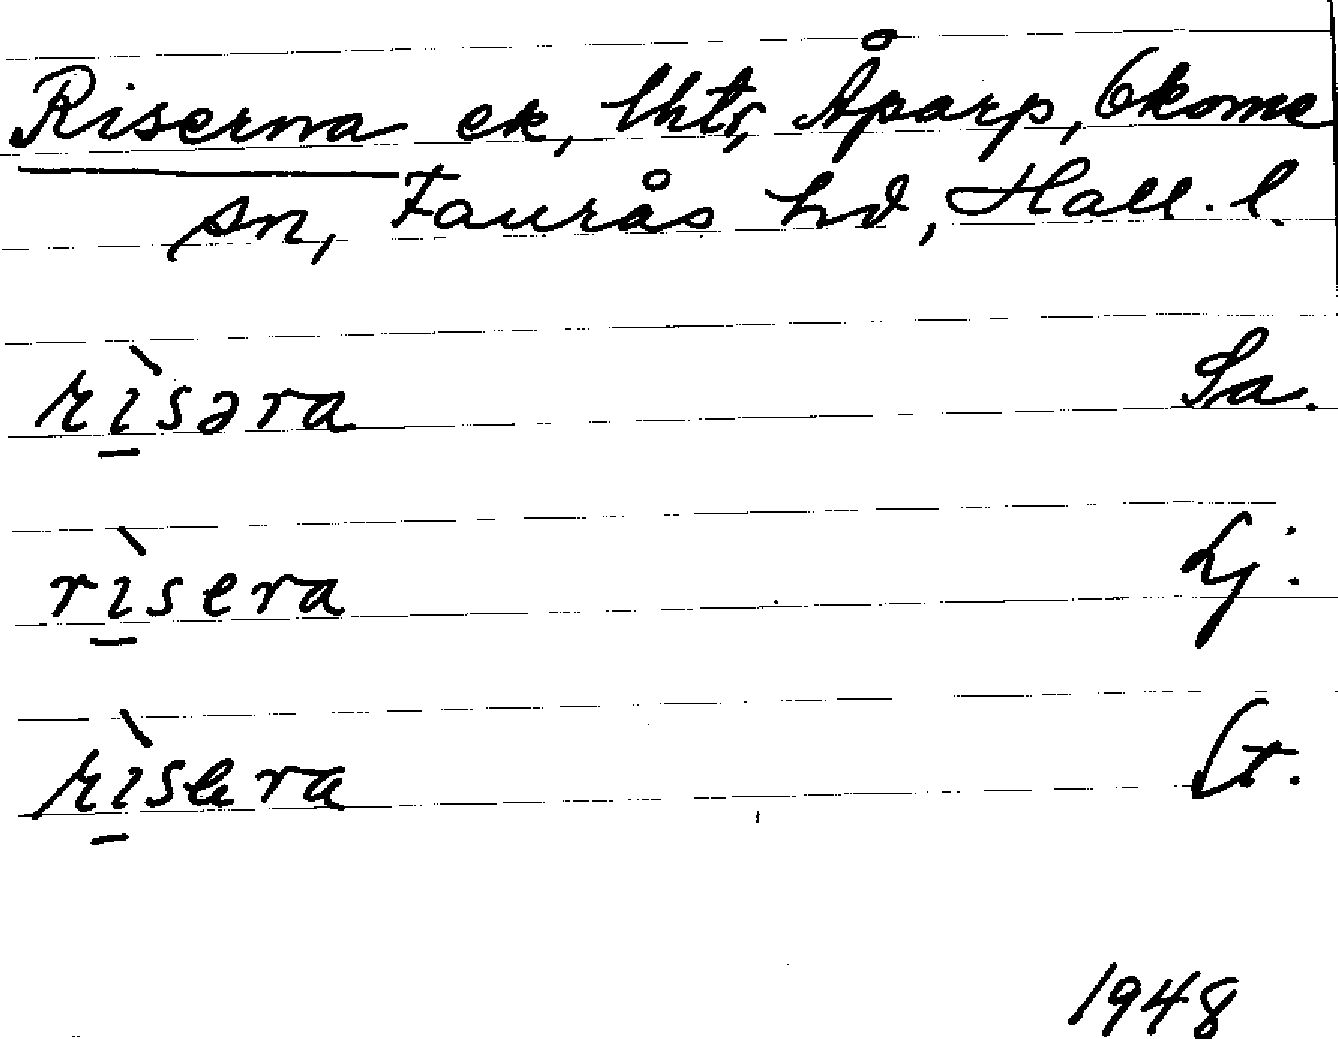 Riserna ek, lhtr, Åparp, Okome
sn, Faurås hd, Hall. l.
rìsəra Sa.
rìsera Lj.
rìsæra St.
1948